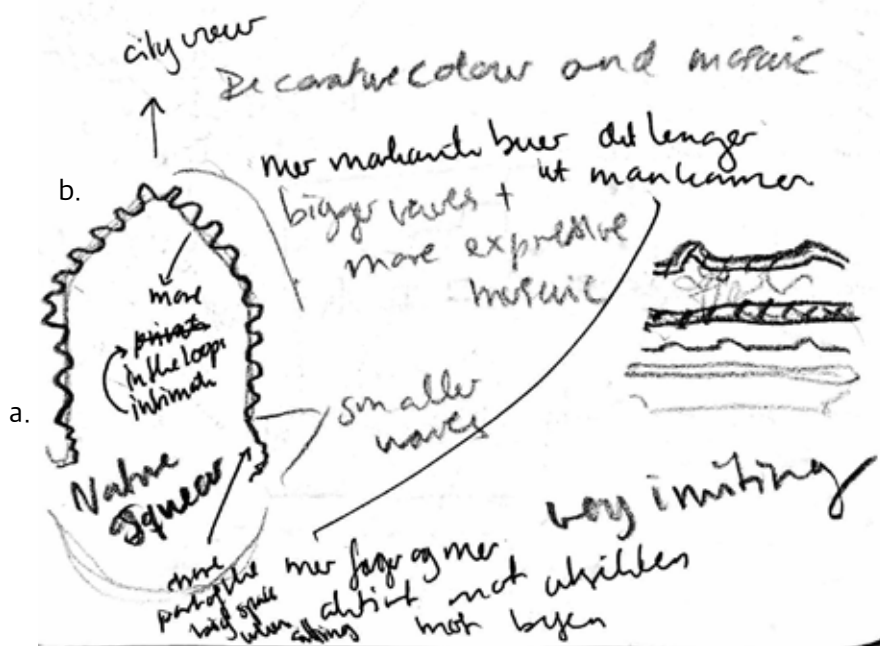 city view
Decorative colour and mosaic
mer markante buer det lenger
ut man kommer
bigger waves +
more expressive
mosaic
b.
more
private
in the loops
intimate
a.
smaller
waves
Nature
Square
very inviting
more
part of the
big space
when sitting
mer farger og mer
aktivt mot utsikten
mot byen